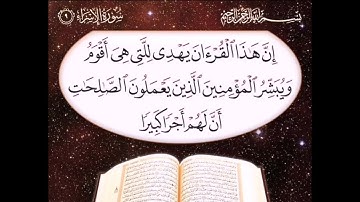 بِسْمِ ٱللَّهِ ٱلرَّحْمَٰنِ ٱلرَّحِيمِ
سُورَةُ الإِسْرَاءِ ٩
إِنَّ هَٰذَا ٱلْقُرْءَانَ يَهْدِى لِلَّتِى هِىَ أَقْوَمُ
وَيُبَشِّرُ ٱلْمُؤْمِنِينَ ٱلَّذِينَ يَعْمَلُونَ ٱلصَّٰلِحَٰتِ
أَنَّ لَهُمْ أَجْرًا كَبِيرًا